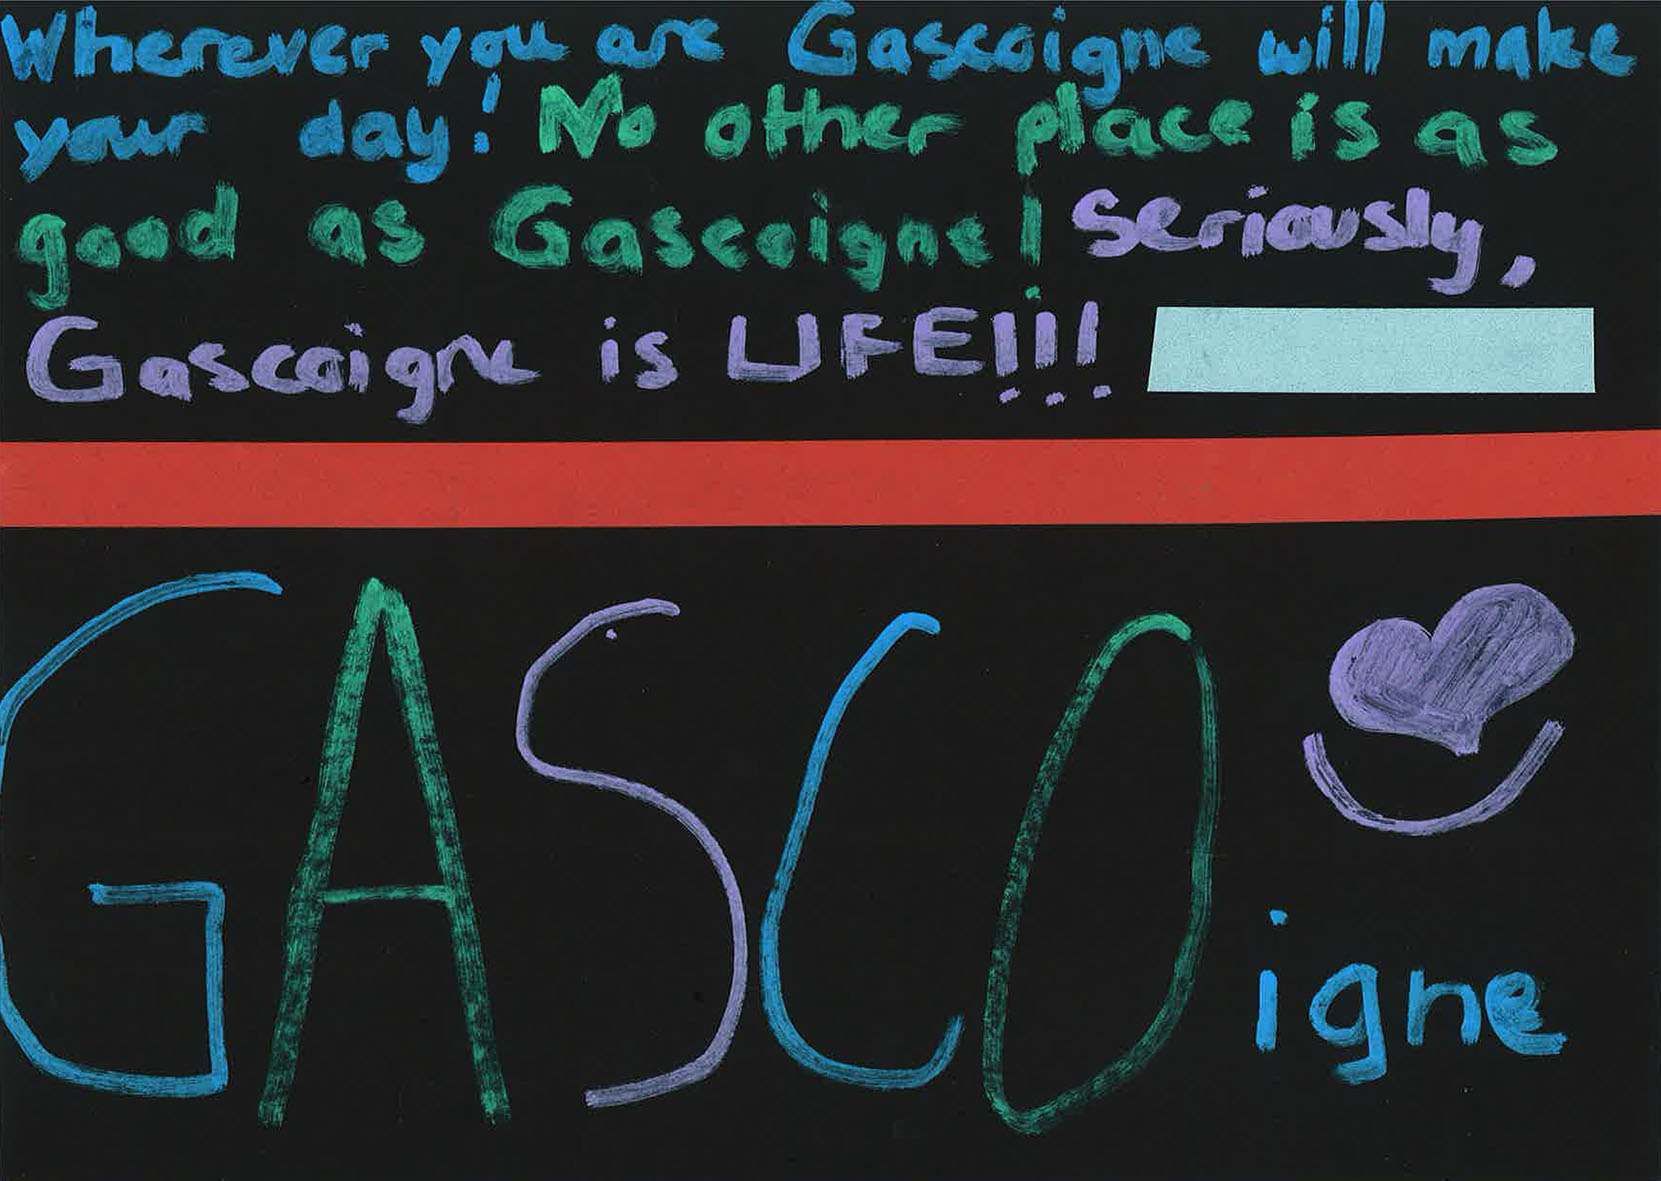 Wherever you are Gascoigne will make
your day! No other place is as
good as Gascoigne! Seriously,
Gascoigne is LIFE!!!
GASCO
igne